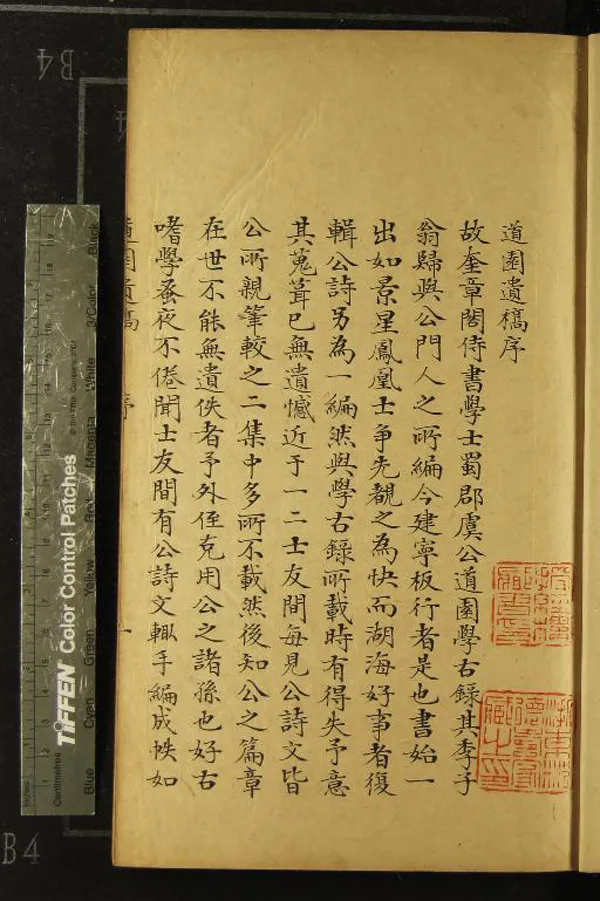 道園遺稿序
故奎章閣侍書學士蜀郡虞公道園學古錄其季子
翁歸與公門人之所編今建寧板行者是也書始一
出如景星鳳凰士爭先覩之為快而湖海好事者復
輯公詩另為一編然與學古錄所載時有得失予意
其蒐葺已無遺憾近于一二士友間每見公詩文皆
公所親筆較之二集中多所不載然後知公之篇章
在世不能無遺佚者予外侄克用公之諸孫也好古
嗜學蚤夜不倦聞士友間有公詩文輒手編成帙如
道園遺稿 序 一
B4
B4
4
TIFFEN Color Control Patches
© The Tiffen Company, 2007
Inches
Centimetres
Blue Cyan Green Yellow Red Magenta White 3/Color Black